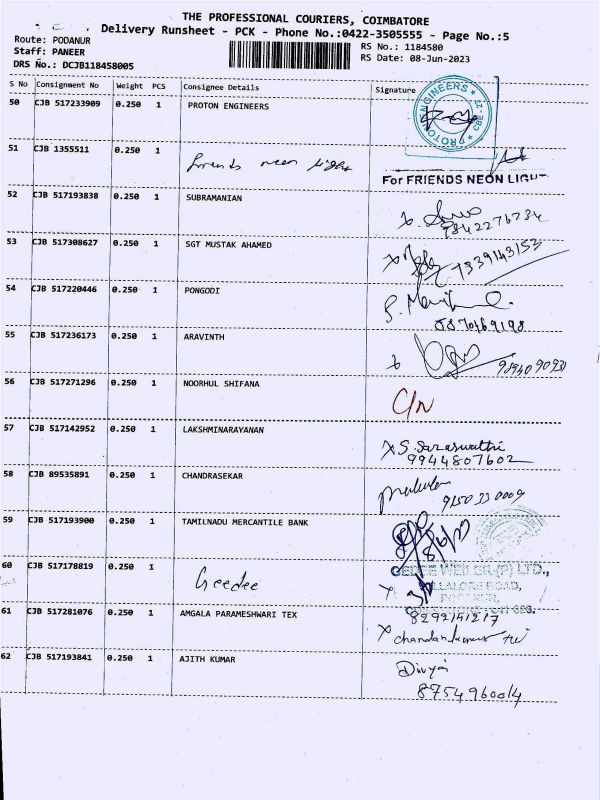 THE PROFESSIONAL COURIERS, COIMBATORE
Delivery Runsheet - PCK - Phone No.:0422-3505555 - Page No.:5
Route: PODANUR
RS No.: 1184580
Staff: PANEER
RS Date: 08-Jun-2023
DRS No.: DCJB118458005
S No Consignment No Weight PCS Consignee Details Signature
50 CJB 517233909 0.250 1 PROTON ENGINEERS
PROTON ENGINEERS * CBE - 22 *
51 CJB 1355511 0.250 1 friends neon light
For FRIENDS NEON LIGHT
52 CJB 517193838 0.250 1 SUBRAMANIAN
7842276734
53 CJB 517308627 0.250 1 SGT MUSTAK AHAMED
7339143153
54 CJB 517220446 0.250 1 PONGODI
55 CJB 517236173 0.250 1 ARAVINTH
56 CJB 517271296 0.250 1 NOORHUL SHIFANA
C/N
57 CJB 517142952 0.250 1 LAKSHMINARAYANAN
X S. Saraswathi
9944807602
58 CJB 89535891 0.250 1 CHANDRASEKAR
9150330009
59 CJB 517193900 0.250 1 TAMILNADU MERCANTILE BANK
60 CJB 517178819 0.250 1 Geedee
GEDEE WEILER (P) LTD.,
61 CJB 517281076 0.250 1 AMGALA PARAMESHWARI TEX
8292141217
X chandankumar
62 CJB 517193841 0.250 1 AJITH KUMAR
Divya
8754960014